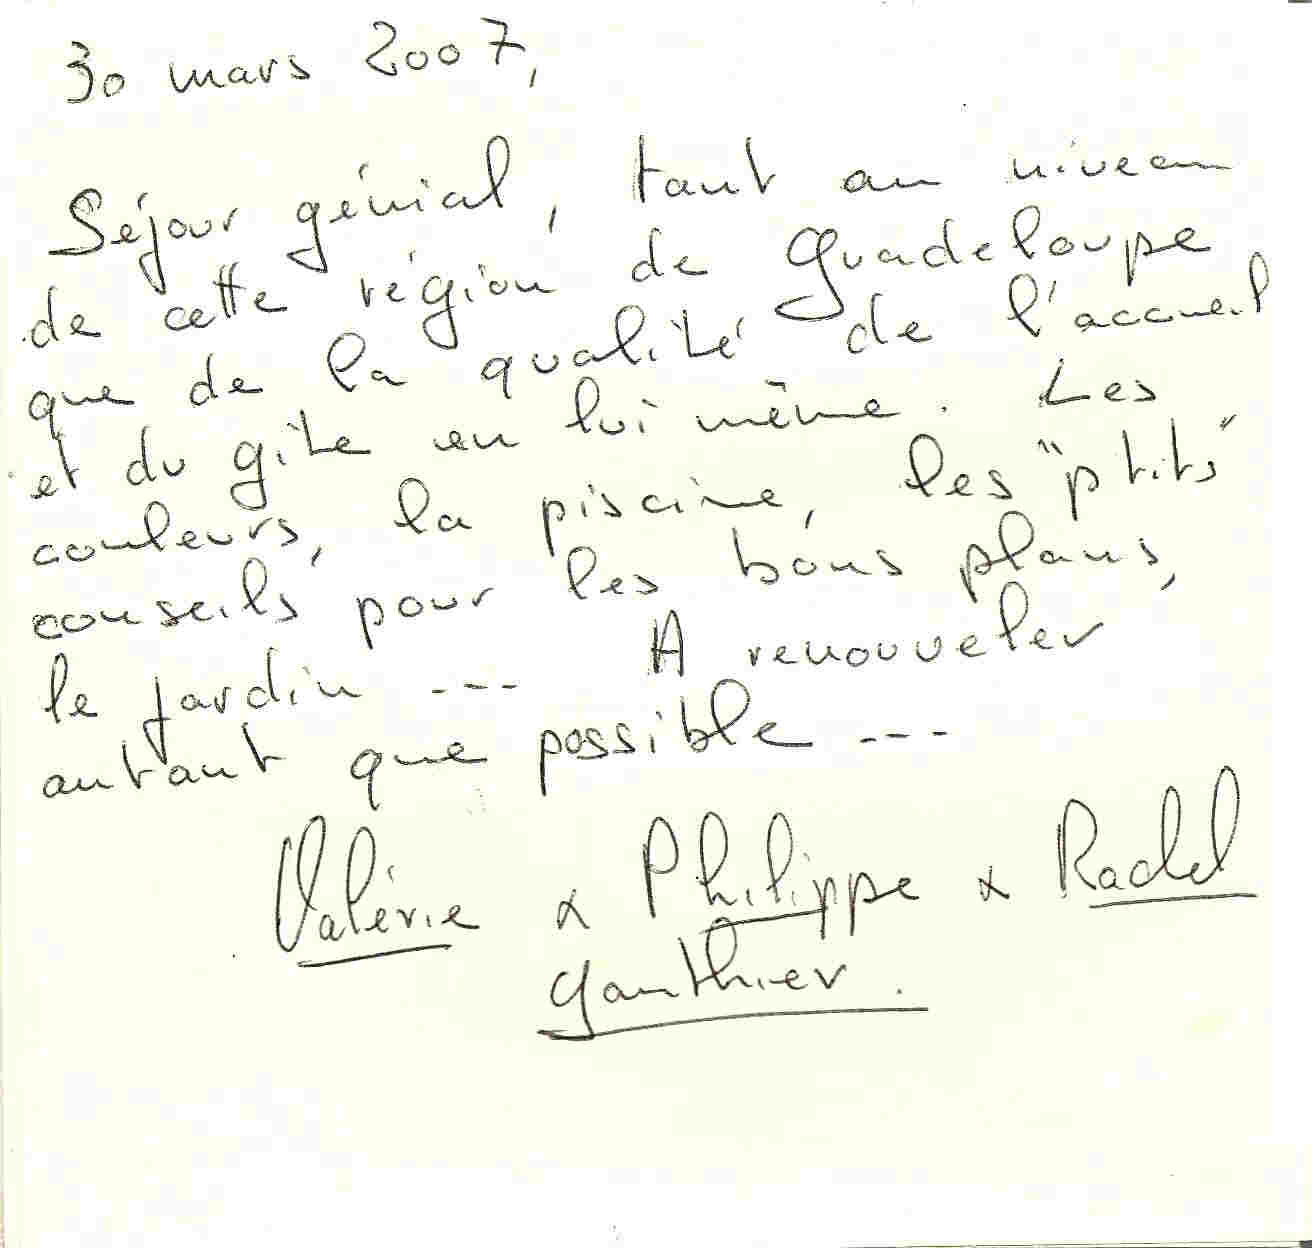 30 mars 2007,
Séjour génial, tant au niveau
de cette région de Guadeloupe
que de la qualité de l'accueil
et du gite en lui même. Les
couleurs, la piscine, les "ptits"
conseils pour les bons plans,
le jardin --- A renouveler
autant que possible ---
Valérie & Philippe & Rachel
Gauthier.